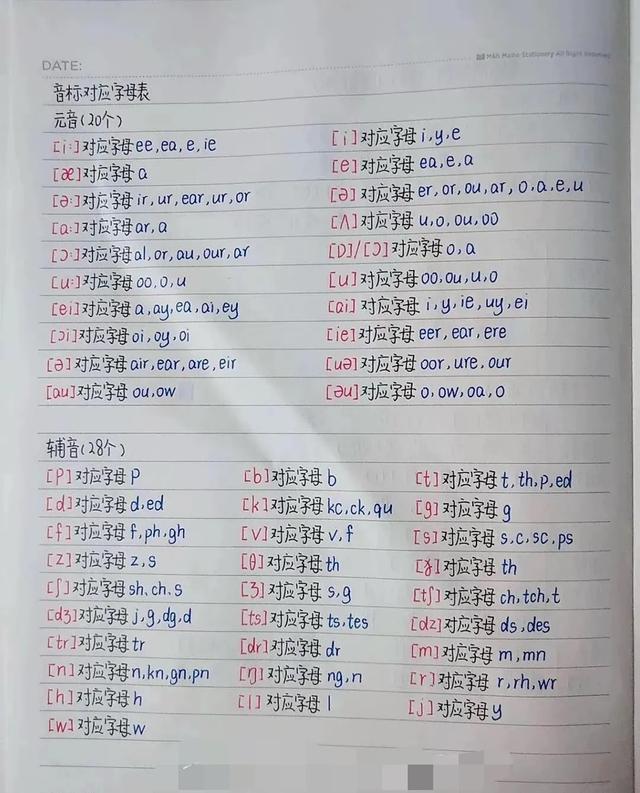 DATE:
M&G Mario Stationery All Right Reserved
音标对应字母表
元音(20个)
[i:]对应字母ee,ea,e,ie [i]对应字母i,y,e
[æ]对应字母a [e]对应字母ea,e,a
[ə:]对应字母ir,ur,ear,ur,or [ə]对应字母er,or,ou,ar,o,a,e,u
[a:]对应字母ar,a [Λ]对应字母u,o,ou,oo
[ɔ:]对应字母al,or,au,our,ar [ɒ]/[ɔ]对应字母o,a
[u:]对应字母oo,o,u [u]对应字母oo,ou,u,o
[ei]对应字母a,ay,ea,ai,ey [ai]对应字母i,y,ie,uy,ei
[ɔi]对应字母oi,oy,oi [ie]对应字母eer,ear,ere
[ə]对应字母air,ear,are,eir [uə]对应字母oor,ure,our
[au]对应字母ou,ow [əu]对应字母o,ow,oa,o
辅音(28个)
[p]对应字母p [b]对应字母b [t]对应字母t,th,p,ed
[d]对应字母d,ed [k]对应字母kc,ck,qu [g]对应字母g
[f]对应字母f,ph,gh [v]对应字母v,f [s]对应字母s,c,sc,ps
[z]对应字母z,s [θ]对应字母th [ð]对应字母th
[ʃ]对应字母sh,ch,s [ʒ]对应字母s,g [tʃ]对应字母ch,tch,t
[dʒ]对应字母j,g,dg,d [ts]对应字母ts,tes [dz]对应字母ds,des
[tr]对应字母tr [dr]对应字母dr [m]对应字母m,mn
[n]对应字母n,kn,gn,pn [ŋ]对应字母ng,n [r]对应字母r,rh,wr
[h]对应字母h [l]对应字母l [j]对应字母y
[w]对应字母w